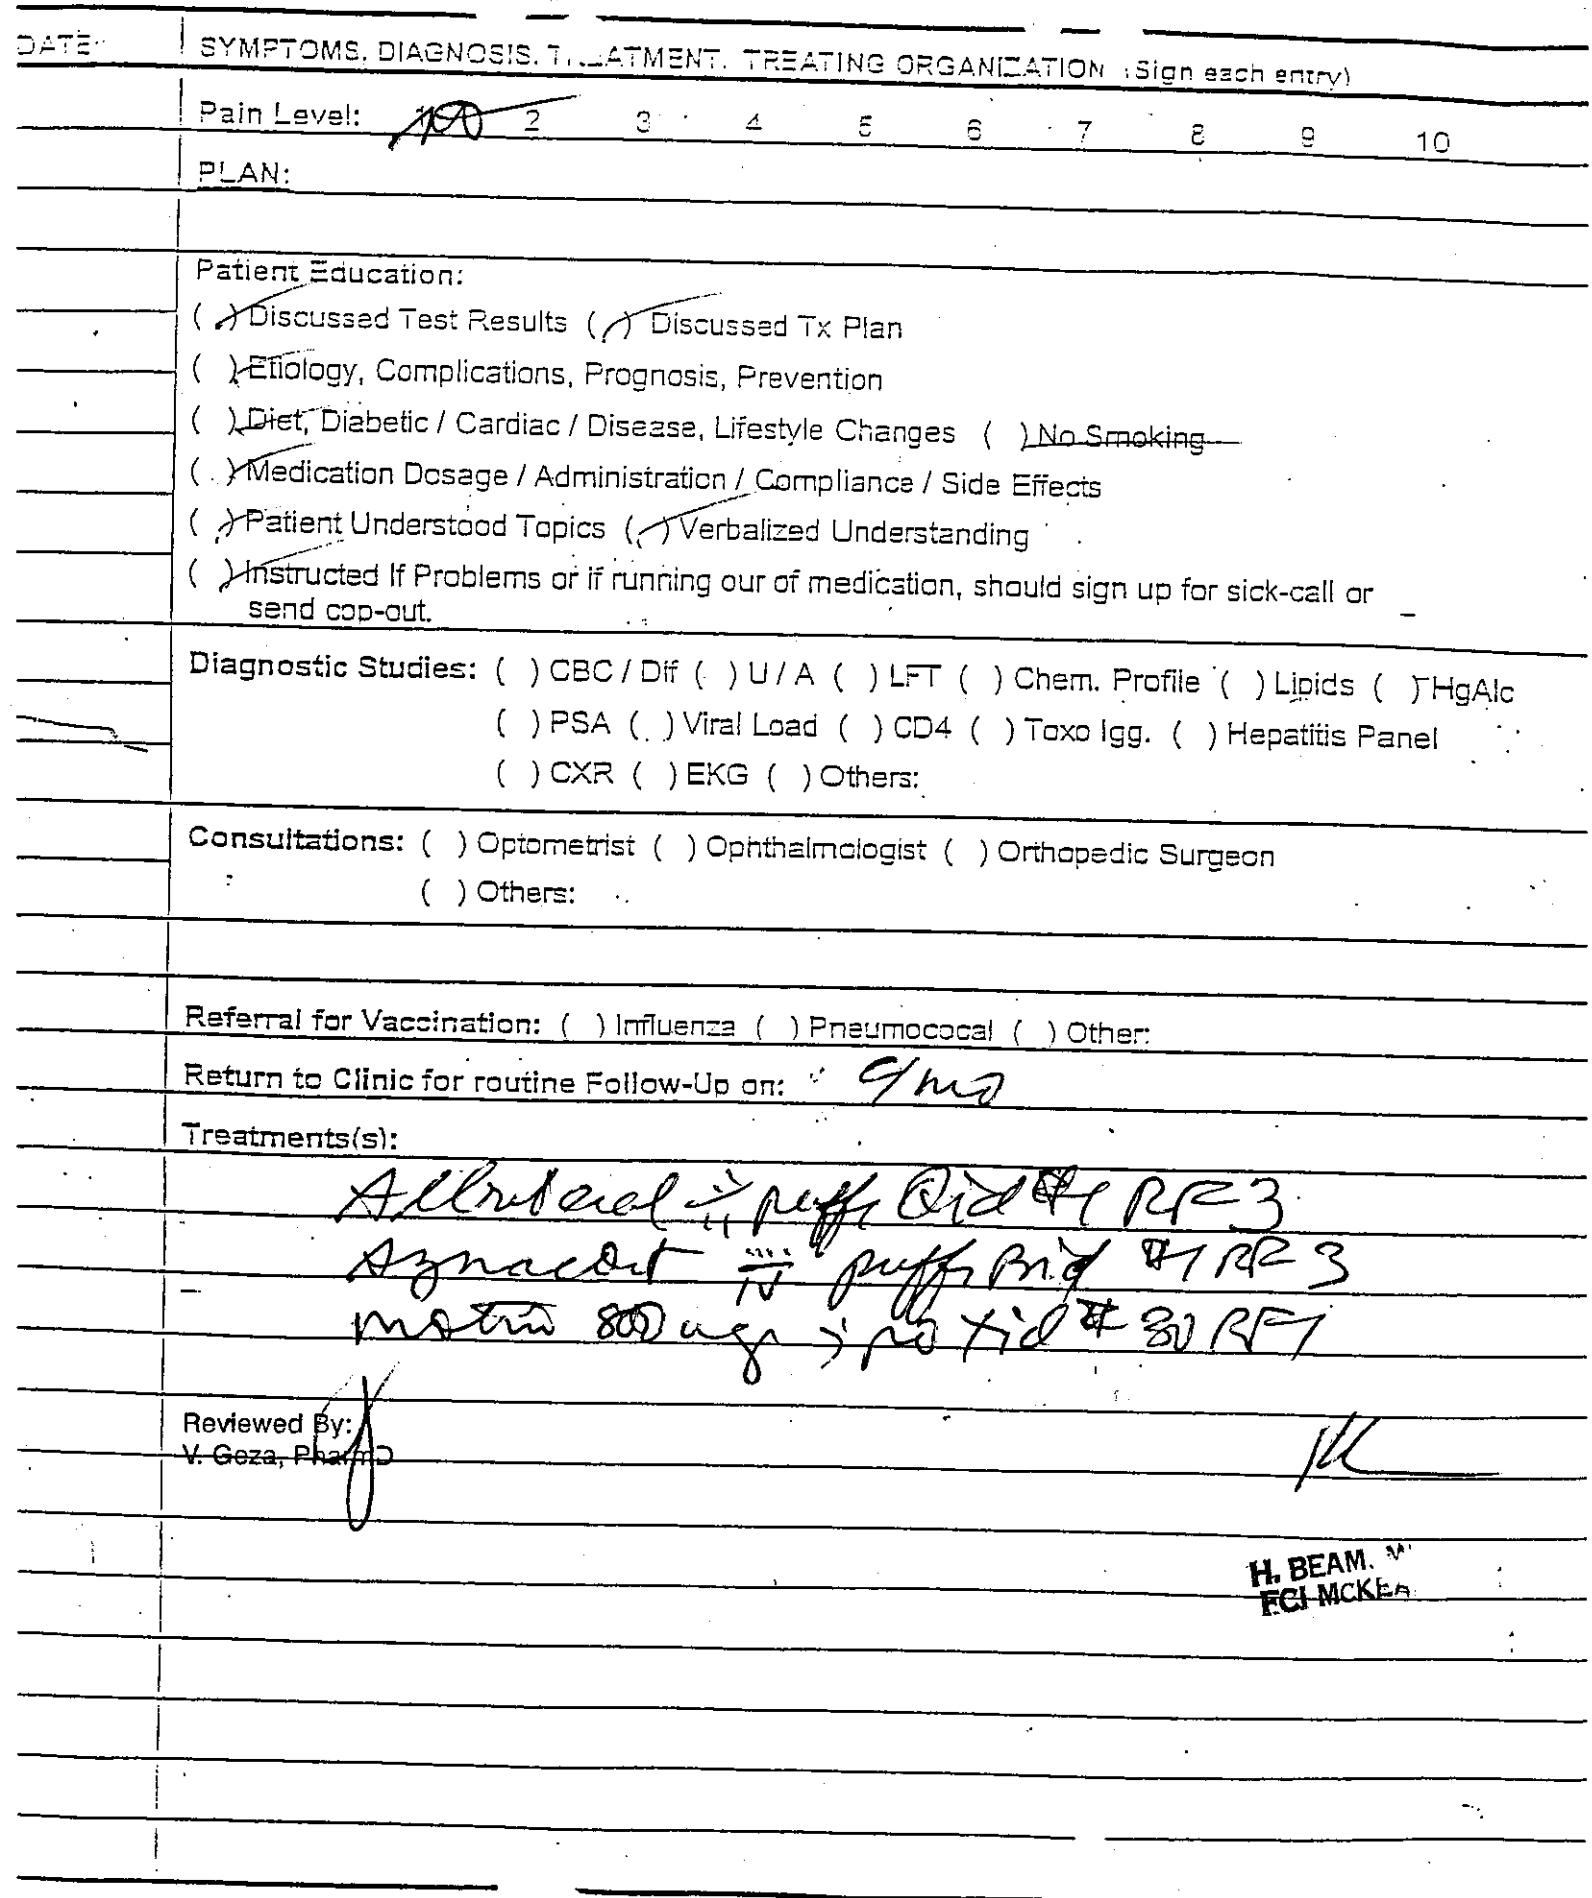 DATE SYMPTOMS, DIAGNOSIS, T ATMENT, TREATING ORGANIZATION (Sign each entry)
Pain Level: 2 3 4 5 6 7 8 9 10
PLAN:
Patient Education:
( ) Discussed Test Results ( ) Discussed Tx Plan
( ) Etiology, Complications, Prognosis, Prevention
( ) Diet, Diabetic / Cardiac / Disease, Lifestyle Changes ( ) No Smoking
( ) Medication Dosage / Administration / Compliance / Side Effects
( ) Patient Understood Topics ( ) Verbalized Understanding
( ) Instructed If Problems or if running our of medication, should sign up for sick-call or
send cop-out.
Diagnostic Studies: ( ) CBC / Dif ( ) U / A ( ) LFT ( ) Chem. Profile ( ) Lipids ( ) HgAlc
( ) PSA ( ) Viral Load ( ) CD4 ( ) Toxo Igg. ( ) Hepatitis Panel
( ) CXR ( ) EKG ( ) Others:
Consultations: ( ) Optometrist ( ) Ophthalmologist ( ) Orthopedic Surgeon
( ) Others:
Referral for Vaccination: ( ) Influenza ( ) Pneumococal ( ) Other:
Return to Clinic for routine Follow-Up on:
Treatments(s):
Albuterol ii puffs Qid #1 RF3
Azmacort iv puffs Bid #1 RF 3
Motrin 800 mg i po tid # 30 RF1
Reviewed By:
V. Geza, PharmD
H. BEAM. M
FCI MCKEA